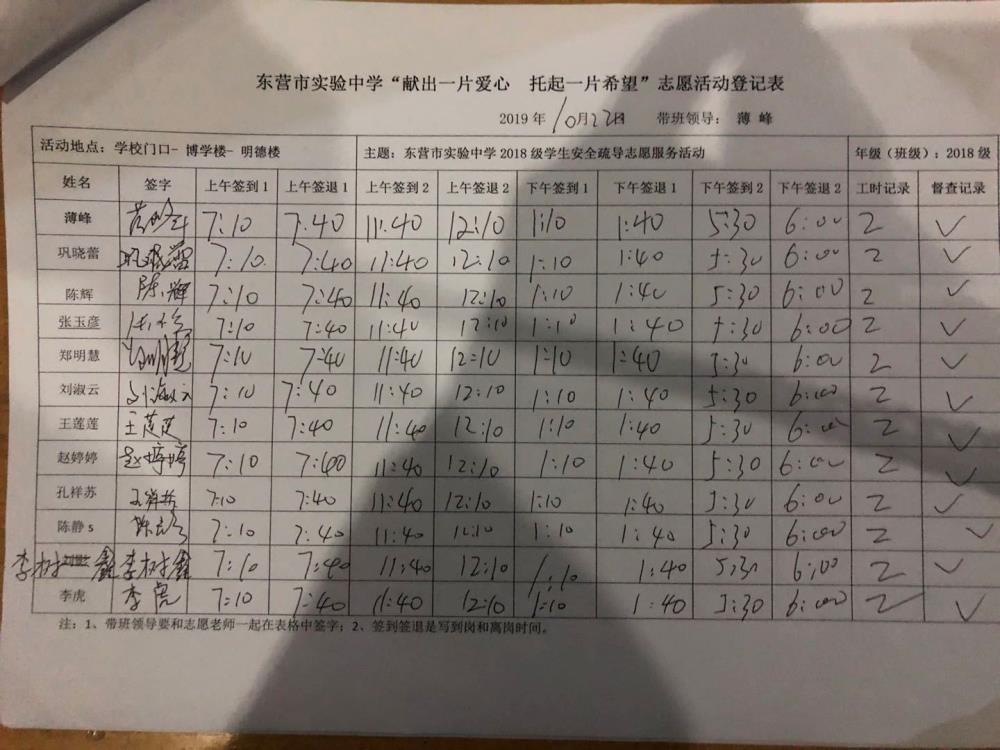 东营市实验中学“献出一片爱心 托起一片希望”志愿活动登记表
2019年10月22日 带班领导：薄峰
活动地点：学校门口- 博学楼- 明德楼 主题：东营市实验中学2018级学生安全疏导志愿服务活动 年级（班级）：2018级
姓名 签字 上午签到1 上午签退1 上午签到2 上午签退2 下午签到1 下午签退1 下午签到2 下午签退2 工时记录 督查记录
薄峰 7:10 7:40 11:40 12:10 1:10 1:40 5:30 6:00 2 ✓
巩晓蕾 巩晓蕾 7:10 7:40 11:40 12:10 1:10 1:40 5:30 6:00 2 ✓
陈辉 陈辉 7:10 7:40 11:40 12:10 1:10 1:40 5:30 6:00 2 ✓
张玉彦 7:10 7:40 11:40 12:10 1:10 1:40 5:30 6:00 2 ✓
郑明慧 郑明慧 7:10 7:40 11:40 12:10 1:10 1:40 5:30 6:00 2 ✓
刘淑云 刘淑云 7:10 7:40 11:40 12:10 1:10 1:40 5:30 6:00 2 ✓
王莲莲 王莲莲 7:10 7:40 11:40 12:10 1:10 1:40 5:30 6:00 2 ✓
赵婷婷 赵婷婷 7:10 7:40 11:40 12:10 1:10 1:40 5:30 6:00 2 ✓
孔祥苏 孔祥苏 7:10 7:40 11:40 12:10 1:10 1:40 5:30 6:00 2 ✓
陈静s 7:10 7:40 11:40 12:10 1:10 1:40 5:30 6:00 2 ✓
李树鑫 李树鑫 7:10 7:40 11:40 12:10 1:10 1:40 5:30 6:00 2 ✓
李虎 李虎 7:10 7:40 11:40 12:10 1:10 1:40 5:30 6:00 2 ✓
注：1、带班领导要和志愿老师一起在表格中签字；2、签到签退是写到岗和离岗时间。